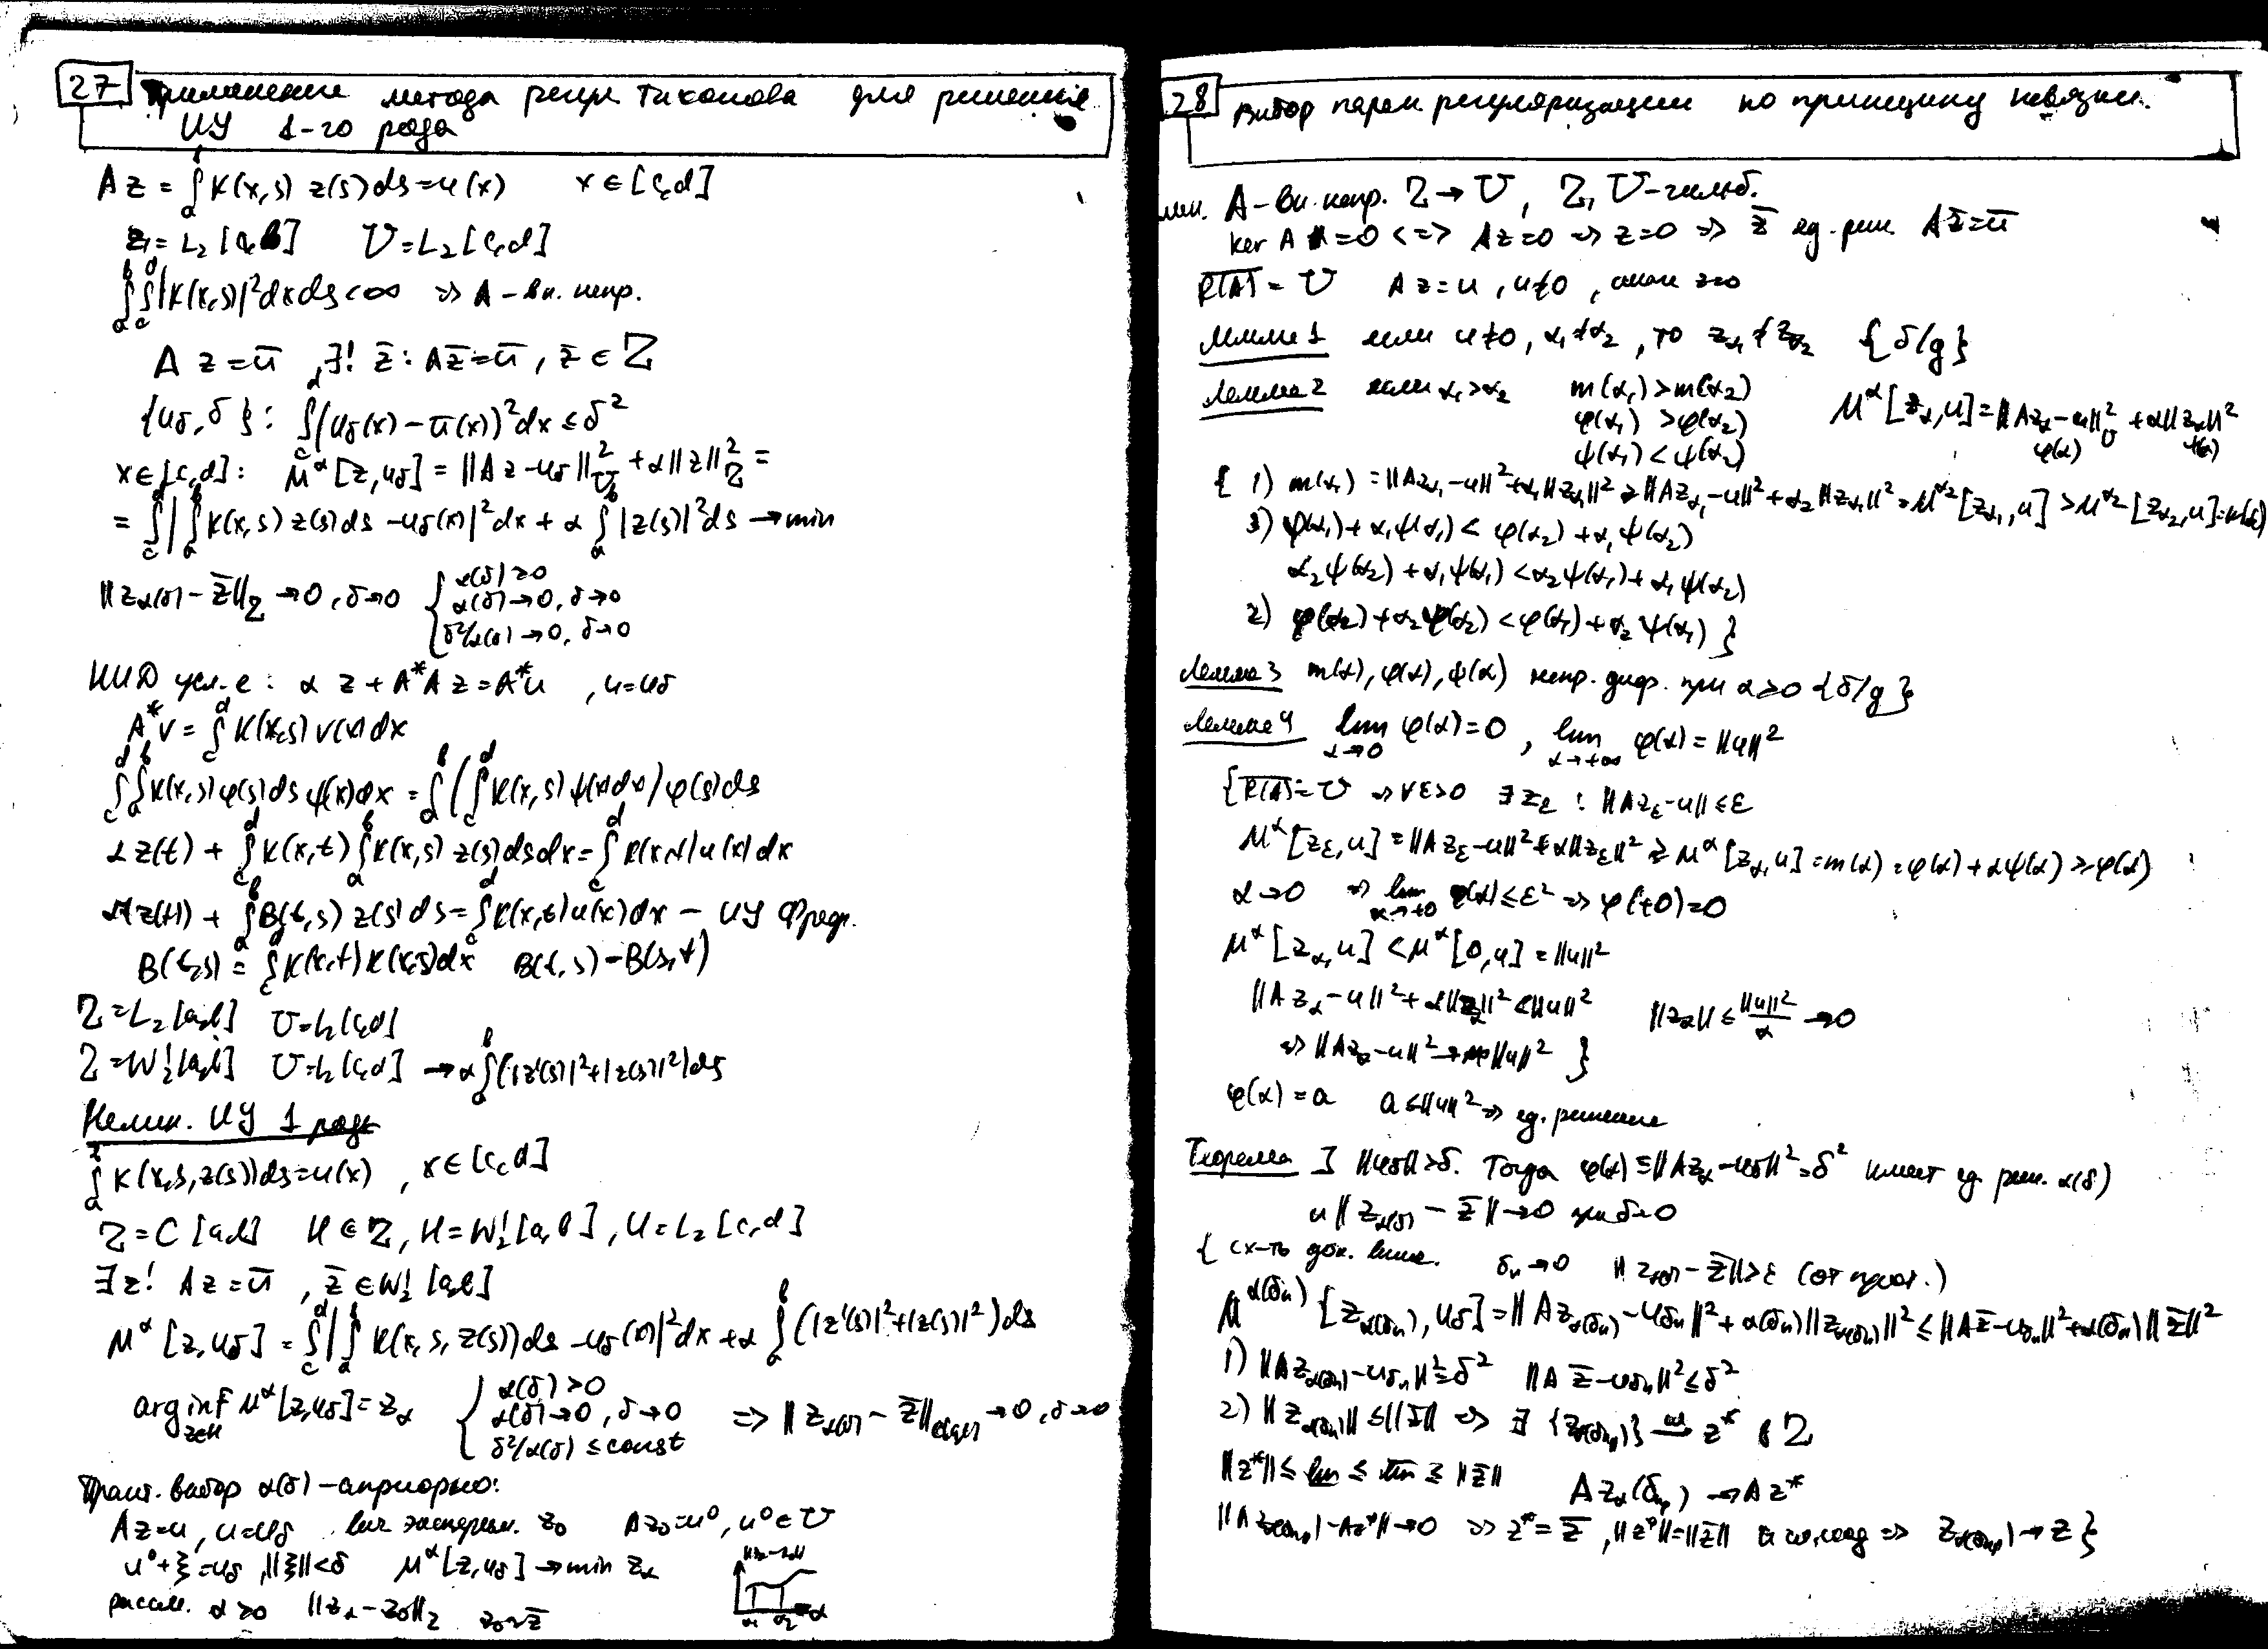 27 Применение метода регул Тихонова для решения
ИУ 1-го рода
Az = ∫_a^b K(x,s) z(s)ds = u(x) x ∈ [c,d]
Z = L₂[a,b] U = L₂[c,d]
∫_a^b ∫_c^d |K(x,s)|² dxds < ∞ => A – вп. непр.
A z = ū, ∃! z̄ : Az̄ = ū, z̄ ∈ Z
{u_δ, δ} : ∫_c^d (u_δ(x) – ū(x))² dx ≤ δ²
x ∈ [c,d] : M^α[z,u_δ] = ||Az – u_δ||²_U + α||z||²_Z =
= ∫_c^d | ∫_a^b K(x,s) z(s)ds – u_δ(x)|² dx + α ∫_a^b |z(s)|² ds → min
||z_α(δ) – z̄||_Z → 0, δ→0 { α(δ) ≥ 0
α(δ) → 0, δ→0
δ²/α(δ) → 0, δ→0
НИД усл-е : α z + A*A z = A*u , u = u_δ
A*v = ∫_c^d K(x,s) v(x) dx
∫_c^d ∫_a^b K(x,s) φ(s)ds ψ(x)dx = ∫_a^b ( ∫_c^d K(x,s) ψ(x)dx ) φ(s)ds
α z(t) + ∫_c^d K(x,t) ∫_a^b K(x,s) z(s)dsdx = ∫_c^d K(x,t) u(x) dx
α z(t) + ∫_a^b B(t,s) z(s) ds = ∫_c^d K(x,t) u(x) dx – ИУ Фред.
B(t,s) = ∫_c^d K(x,t) K(x,s)dx B(t,s) = B(s,t)
Z = L₂[a,b] U = L₂[c,d]
Z = W₂¹[a,b] U = L₂[c,d] → α ∫_a^b (|z'(s)|² + |z(s)|²) ds
Нелин. ИУ 1 рода
∫_a^b K(x,s,z(s))ds = u(x) , x ∈ [c,d]
Z = C[a,b] H ∈ Z, H = W₂¹[a,b], U = L₂[c,d]
∃z! Az = ū , z̄ ∈ W₂¹[a,b]
M^α[z,u_δ] = ∫_c^d | ∫_a^b K(x,s,z(s))ds – u_δ(x)|² dx + α ∫_a^b (|z'(s)|² + |z(s)|²) ds
arg inf_{z∈H} M^α[z,u_δ] = z_α { α(δ) > 0
α(δ) → 0, δ→0
δ²/α(δ) ≤ const => ||z_α(δ) – z̄||_C[a,b] → 0, δ→0
Практ. выбор α(δ) – априорно:
Az = u, u = u_δ эксперим. z₀ Az₀ = u⁰, u⁰ ∈ U
u⁰ + ξ = u_δ, ||ξ|| < δ M^α[z,u_δ] → min z_α
рассм. α ≥ 0 ||z_α – z₀||_Z z₀ ~ z̄
||z_α – z₀||
α₁ α₂ α
28 Выбор парам регуляризации по принципу невязки.
лин. A – вп. непр. Z → U, Z, U – гильб.
ker A = 0 <=> Az = 0 => z = 0 => z̄ ед. реш. Az̄ = ū
R(A)‾ = U Az = u, u ≠ 0, иначе z=0
Лемма 1 если u ≠ 0, α₁ ≠ α₂, то z_α₁ ≠ z_α₂ {б/д}
Лемма 2 если α₁ > α₂ m(α₁) > m(α₂)
φ(α₁) > φ(α₂)
ψ(α₁) < ψ(α₂)
M^α[z_α,u] = ||Az_α – u||²_U + α||z_α||²
φ(α) ψ(α)
{ 1) m(α₁) = ||Az_α₁ – u||² + α₁||z_α₁||² ≥ ||Az_α₁ – u||² + α₂||z_α₁||² = M^α₂[z_α₁,u] > M^α₂[z_α₂,u] = m(α₂)
3) φ(α₁) + α₁ψ(α₁) < φ(α₂) + α₁ψ(α₂)
α₂ψ(α₂) + α₁ψ(α₁) < α₂ψ(α₁) + α₁ψ(α₂)
2) φ(α₂) + α₂ψ(α₂) < φ(α₁) + α₂ψ(α₁) }
Лемма 3 m(α), φ(α), ψ(α) непр. диф. при α ≥ 0 {б/д}
Лемма 4 lim_{α→0} φ(α) = 0 , lim_{α→+∞} φ(α) = ||u||²
{ R(A)‾ = U => ∀ε>0 ∃ z_ε : ||Az_ε – u|| ≤ ε
M^α[z_ε,u] = ||Az_ε – u||² + α||z_ε||² ≥ M^α[z_α,u] = m(α) = φ(α) + αψ(α) ≥ φ(α)
α→0 => lim_{α→+0} φ(α) ≤ ε² => φ(+0) = 0
M^α[z_α,u] < M^α[0,u] = ||u||²
||Az_α – u||² + α||z_α||² < ||u||² ||z_α|| ≤ ||u||²/α → 0
=> ||Az_α – u||² → ||u||² }
φ(α) = a a ≤ ||u||² => ед. решение
Теорема ] ||u_δ|| > δ. Тогда φ(α) ≡ ||Az_α – u_δ||² = δ² имеет ед. реш. α(δ)
и ||z_α(δ) – z̄|| → 0 при δ→0
{ сх-ть док. выше. δ_n → 0 ||z_α(δ) – z̄|| > ε (от прот.)
M^α(δ_n) [z_α(δ_n), u_δ] = ||Az_α(δ_n) – u_δn||² + α(δ_n)||z_α(δ_n)||² ≤ ||Az̄ – u_δn||² + α(δ_n)||z̄||²
1) ||Az_α(δn) – u_δn||² = δ² ||Az̄ – u_δn||² ≤ δ²
2) ||z_α(δn)|| ≤ ||z̄|| => ∃ {z_α(δnp)} →^сл z* в Z
||z*|| ≤ lim ≤ lim‾ ≤ ||z̄|| Az_α(δ_np) → Az*
||Az_α(δnp) – Az*|| → 0 => z* = z̄, ||z*|| = ||z̄|| => z_α(δnp) → z̄ }